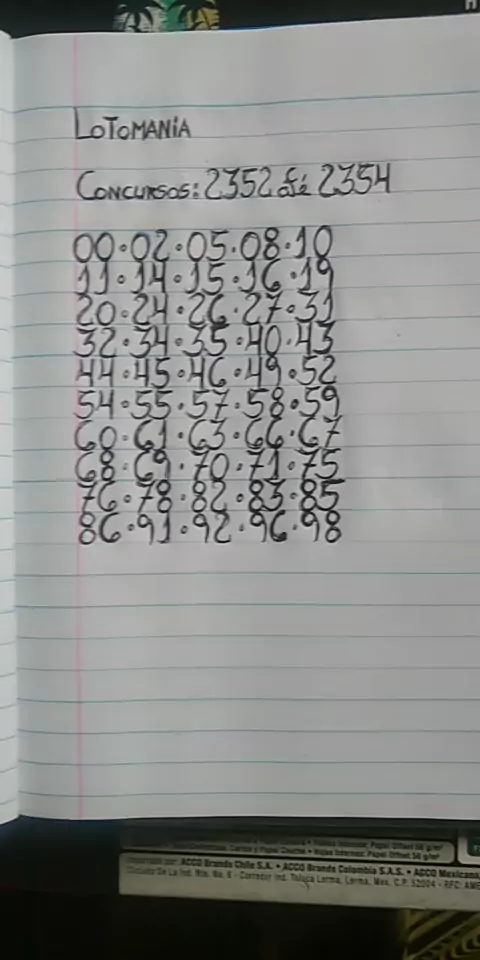 LOTOMANiA
CONCURSOS: 2352 até 2354
00.02.05.08.10
11.14.15.16.19
20.24.26.27.31
32.34.35.40.43
44.45.46.49.52
54.55.57.58.59
60.61.63.66.67
68.69.70.71.75
76.78.82.83.85
86.91.92.96.98
ACCO Brands Chile S.A. • ACCO Brands Colombia S.A.S. • ACCO Mexicana,
Circuito De La Ind. Nte. No. 6 - Corredor Ind. Toluca Lerma, Lerma, Mex. C.P. 52004 - RFC: AME